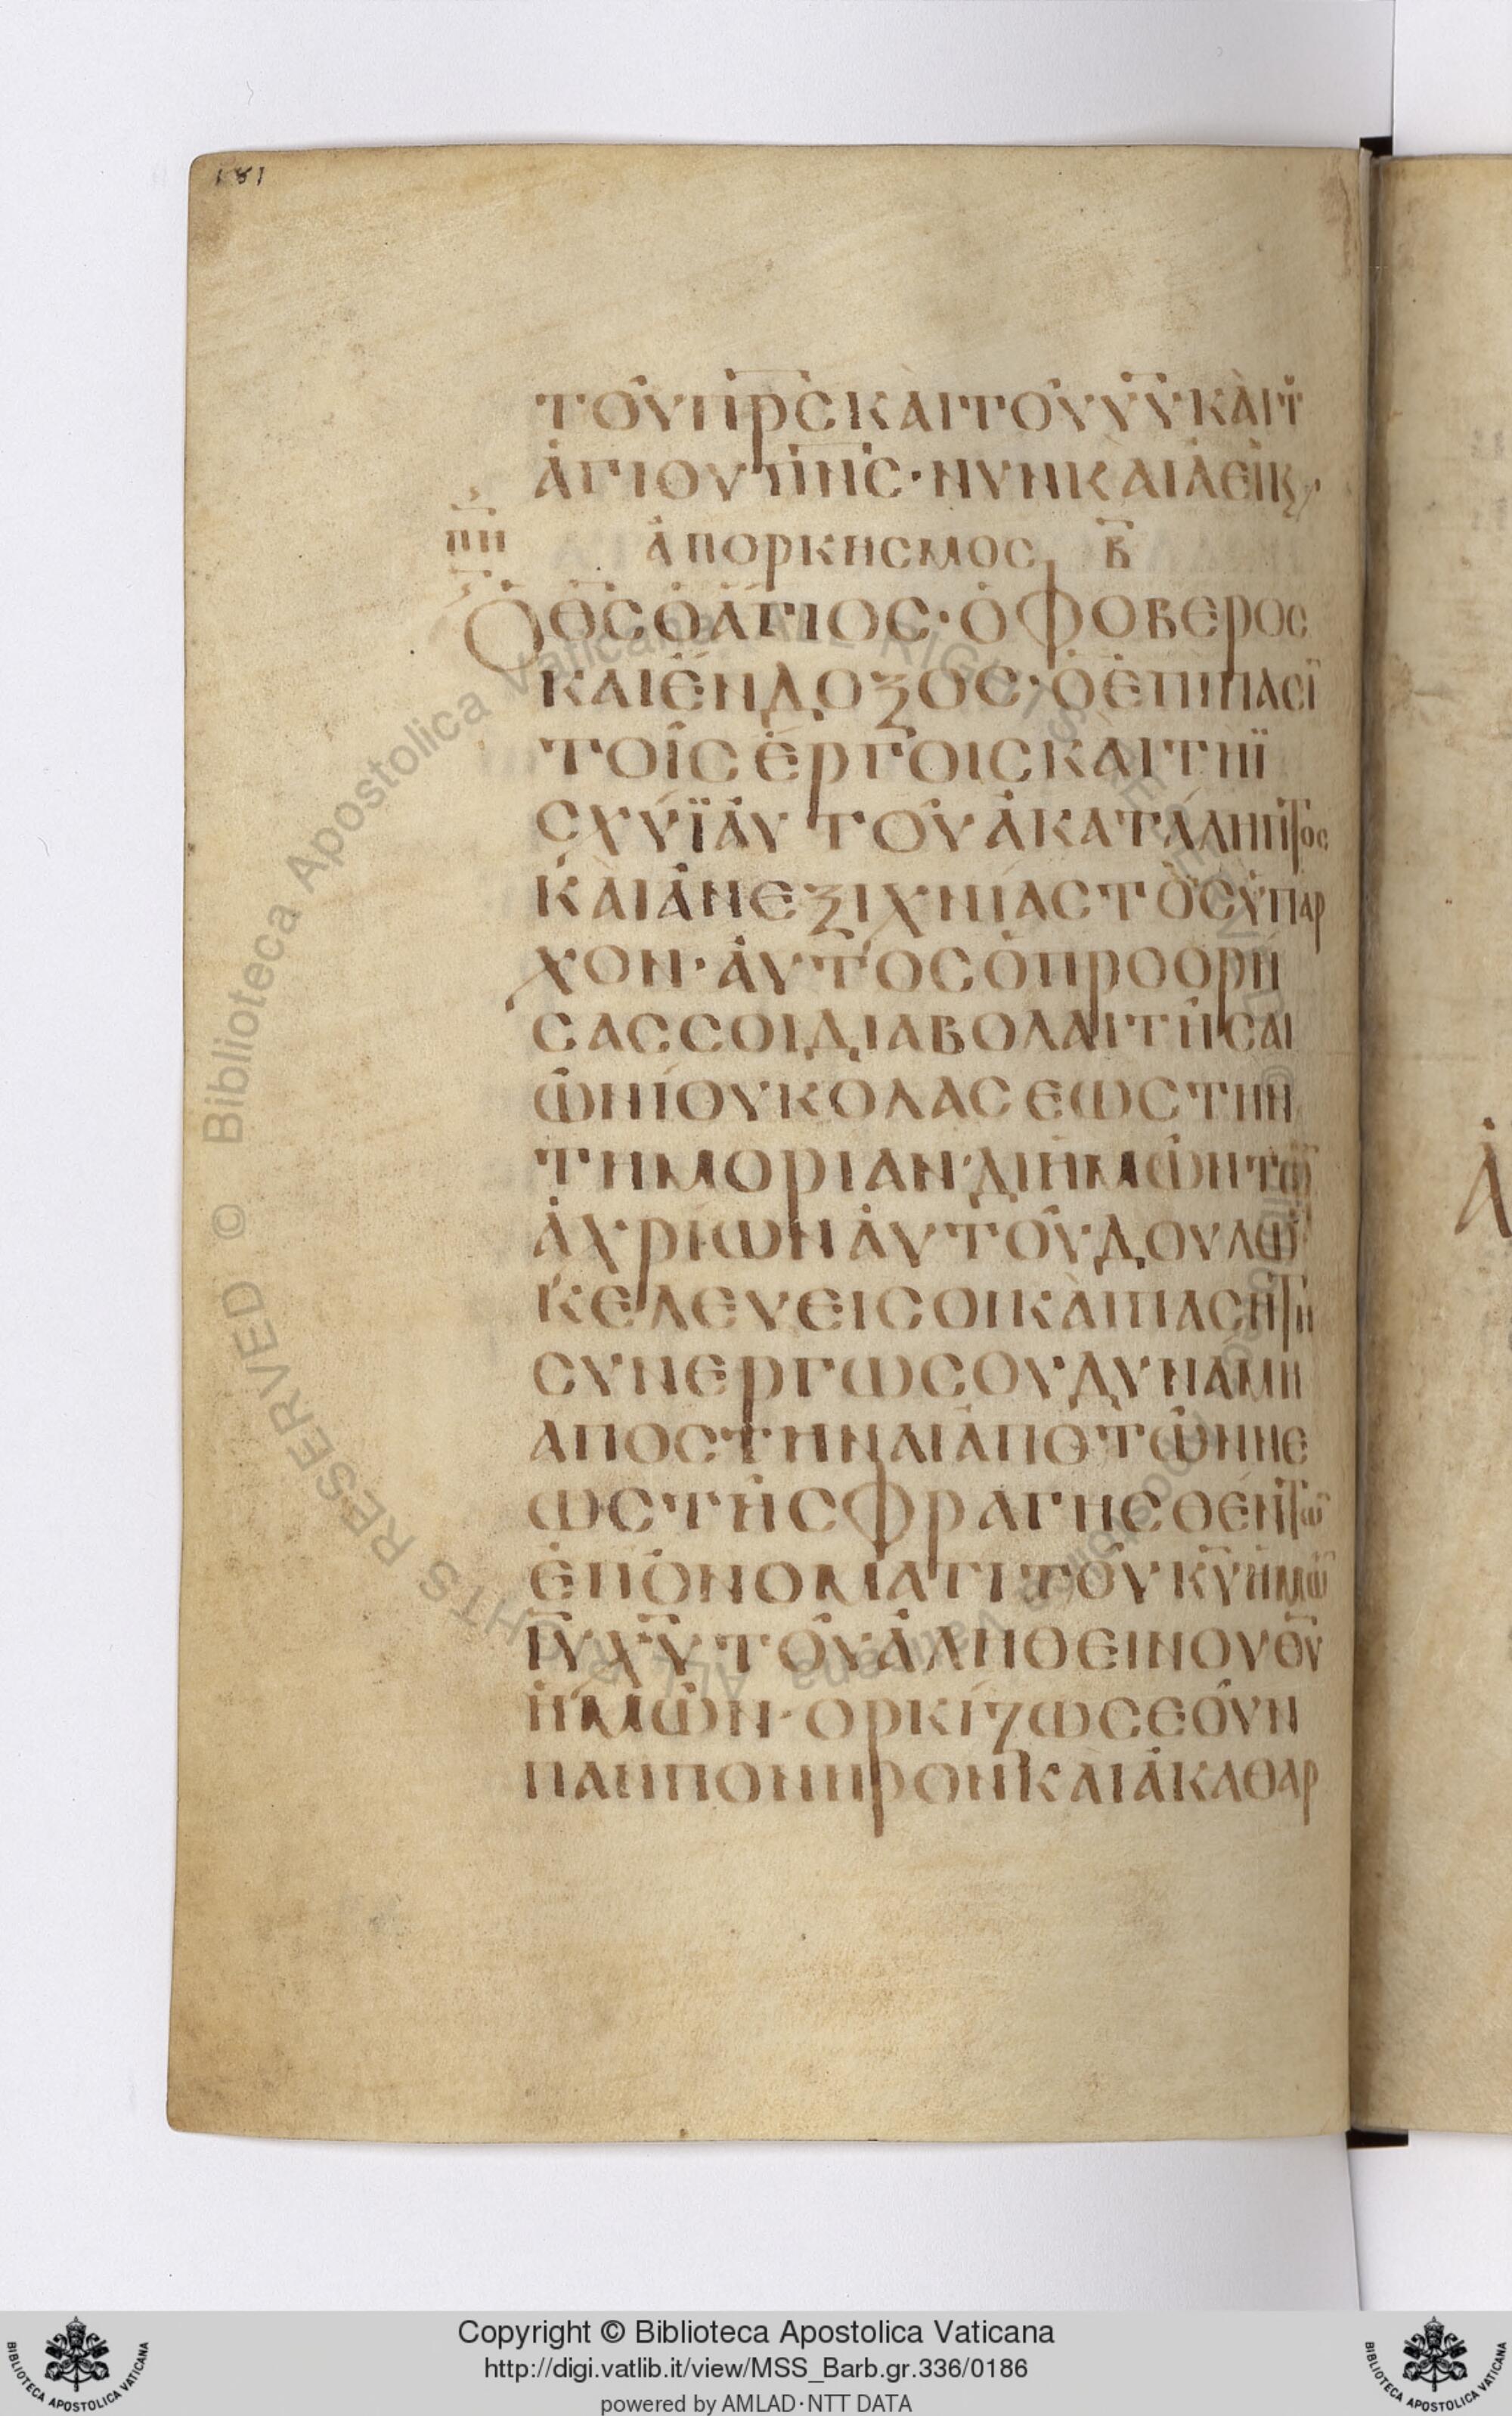 181
ΤΟΥ Π̅Ρ̅Σ̅ ΚΑΙ ΤΟΥ Υ̅Υ̅ ΚΑΙ Τ
ΑΓΙΟΥ Π̅Ν̅Σ̅· ΝΥΝ ΚΑΙ ΑΕΙ Κ,
ΑΠΟΡΚΗΣΜΟΣ Β̅
Ο Θ̅Σ̅ Ο ΑΓΙΟΣ· Ο ΦΟΒΕΡΟΣ
ΚΑΙ ΕΝΔΟΞΟΣ· Ο ΕΠΙ ΠΑΣΙ
ΤΟΙΣ ΕΡΓΟΙΣ ΚΑΙ ΤΗ Ϊ
ΣΧΥΪ ΑΥΤΟΥ ΑΚΑΤΑΛΗΠΤΟΣ
ΚΑΙ ΑΝΕΞΙΧΝΙΑΣΤΟΣ ΥΠΑΡ
ΧΟΝ· ΑΥΤΟΣ Ο ΠΡΟΟΡΗ
ΣΑΣ ΣΟΙ ΔΙΑΒΟΛΑΙ ΤΗΣ ΑΙ
ΩΝΙΟΥ ΚΟΛΑΣΕΩΣ ΤΗΝ
ΤΗΜΟΡΙΑΝ· ΔΙ ΗΜΩΝ ΤΩ̅
ΑΧΡΙΩΝ ΑΥΤΟΥ ΔΟΥΛΩ̅
ΚΕΛΕΥΕΙ ΣΟΙ ΚΑΙ ΠΑΣΗ ΤΗ
ΣΥΝΕΡΓΩ ΣΟΥ ΔΥΝΑΜΗ
ΑΠΟΣΤΗΝΑΙ ΑΠΟ ΤΩΝ ΝΕ
ΩΣΤΗ ΣΦΡΑΓΗΣΘΕΝΤΩ̅
ΕΠ ΟΝΟΜΑΤΙ ΤΟΥ Κ̅Υ̅ ΗΜΩ̅
Ι̅Υ̅ Χ̅Υ̅ ΤΟΥ ΑΛΗΘΕΙΝΟΥ Θ̅Υ̅
ΗΜΩΝ· ΟΡΚΙΖΩ ΣΕ ΟΥΝ
ΠΑΝΠΟΝΗΡΟΝ ΚΑΙ ΑΚΑΘΑΡ
© Biblioteca Apostolica Vaticana ALL RIGHTS RESERVED
Copyright © Biblioteca Apostolica Vaticana
http://digi.vatlib.it/view/MSS_Barb.gr.336/0186
powered by AMLAD·NTT DATA
BIBLIOTECA APOSTOLICA VATICANA
BIBLIOTECA APOSTOLICA VATICANA